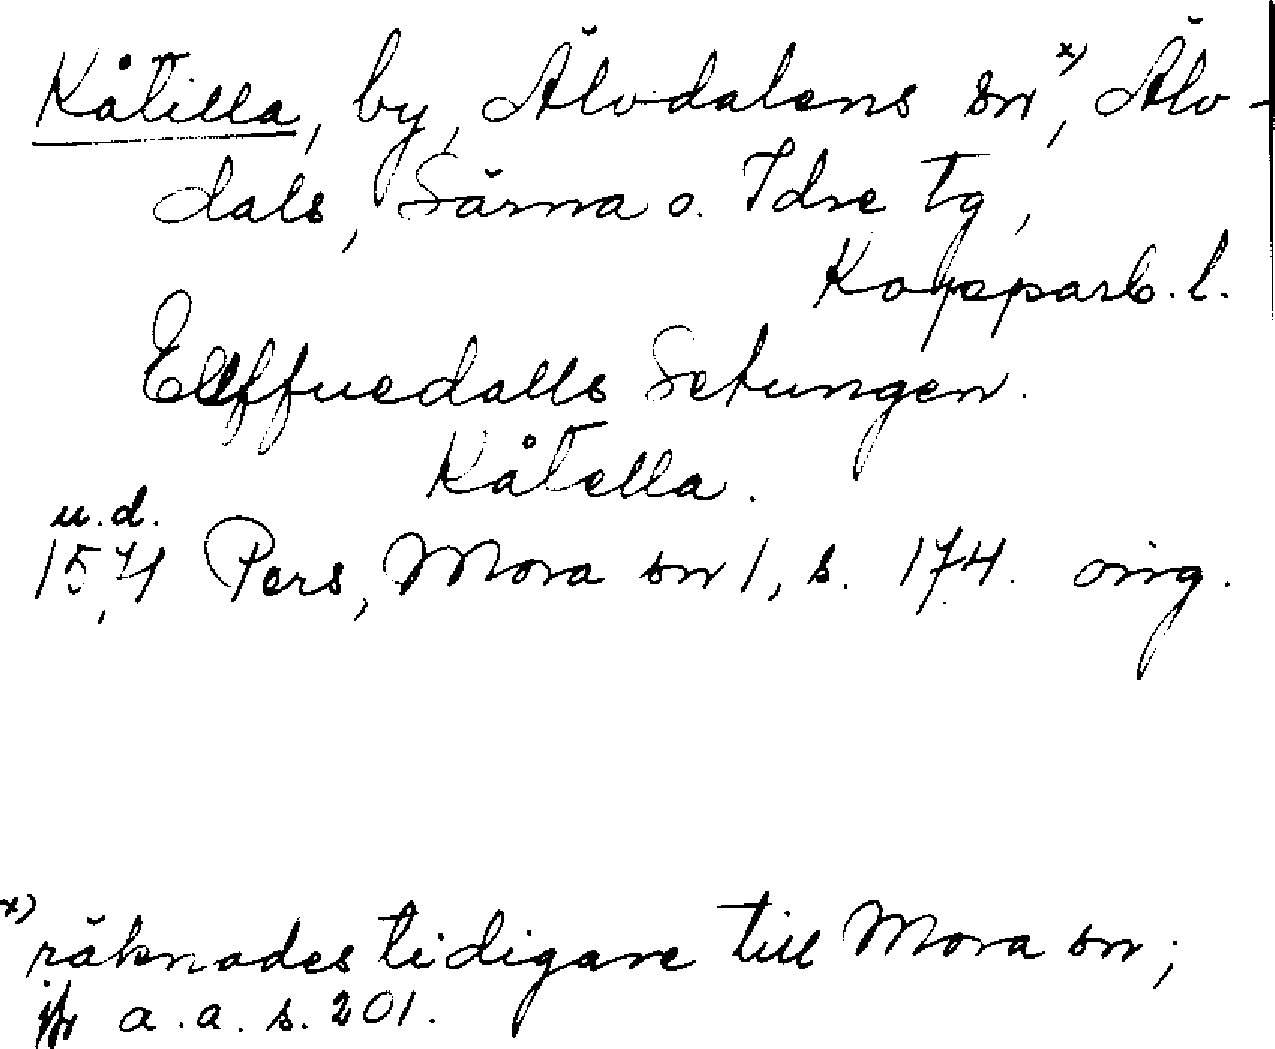 Kåtilla, by, Älvdalens sn x), Älv-
dals, Särna o. Idre tg,
Kopparb. l.
Elffuedalls Setungen.
Kåtella.
u.d.
1571 Pers, Mora sn 1, s. 174. orig.
x)
räknades tidigare till Mora sn;
jfr a.a. s. 201.